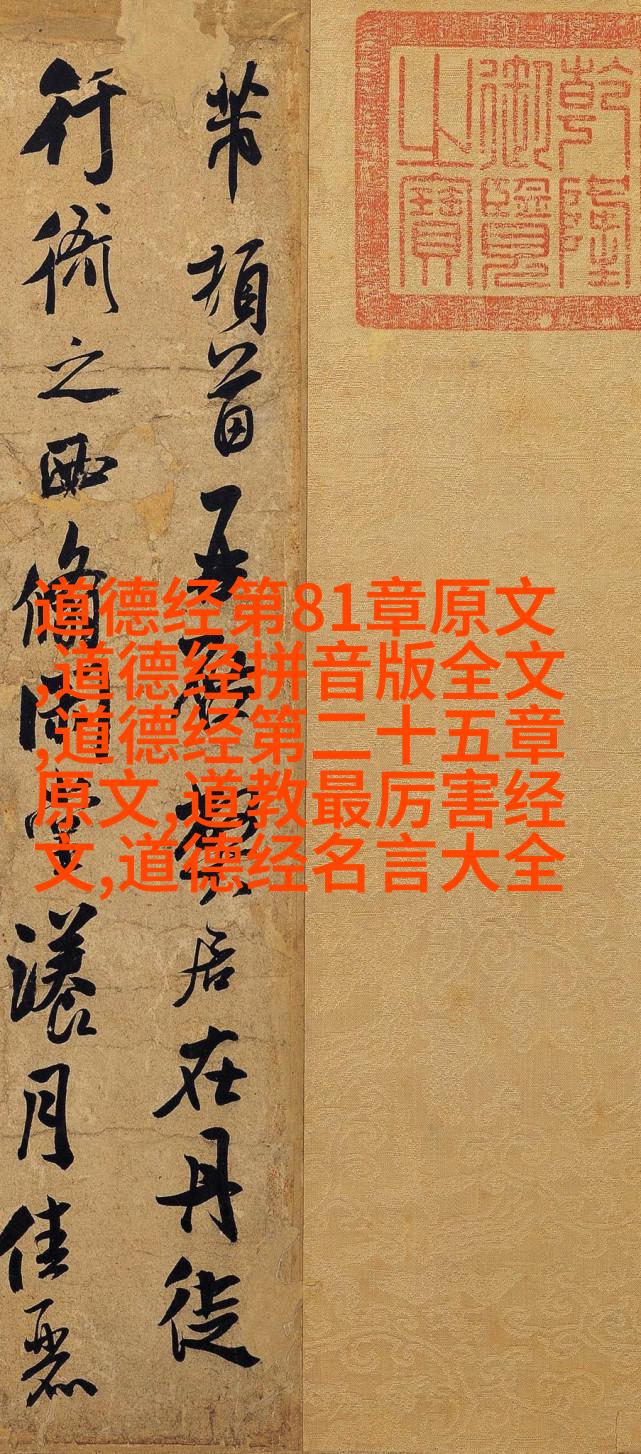 乾隆
御覽
之寶
芾頓首再啟弊居在丹徒
行衙之西翛閒堂漾月佳麗
道德经第81章原文
,道德经拼音版全文
,道德经第二十五章
原文,道教最厉害经
文,道德经名言大全